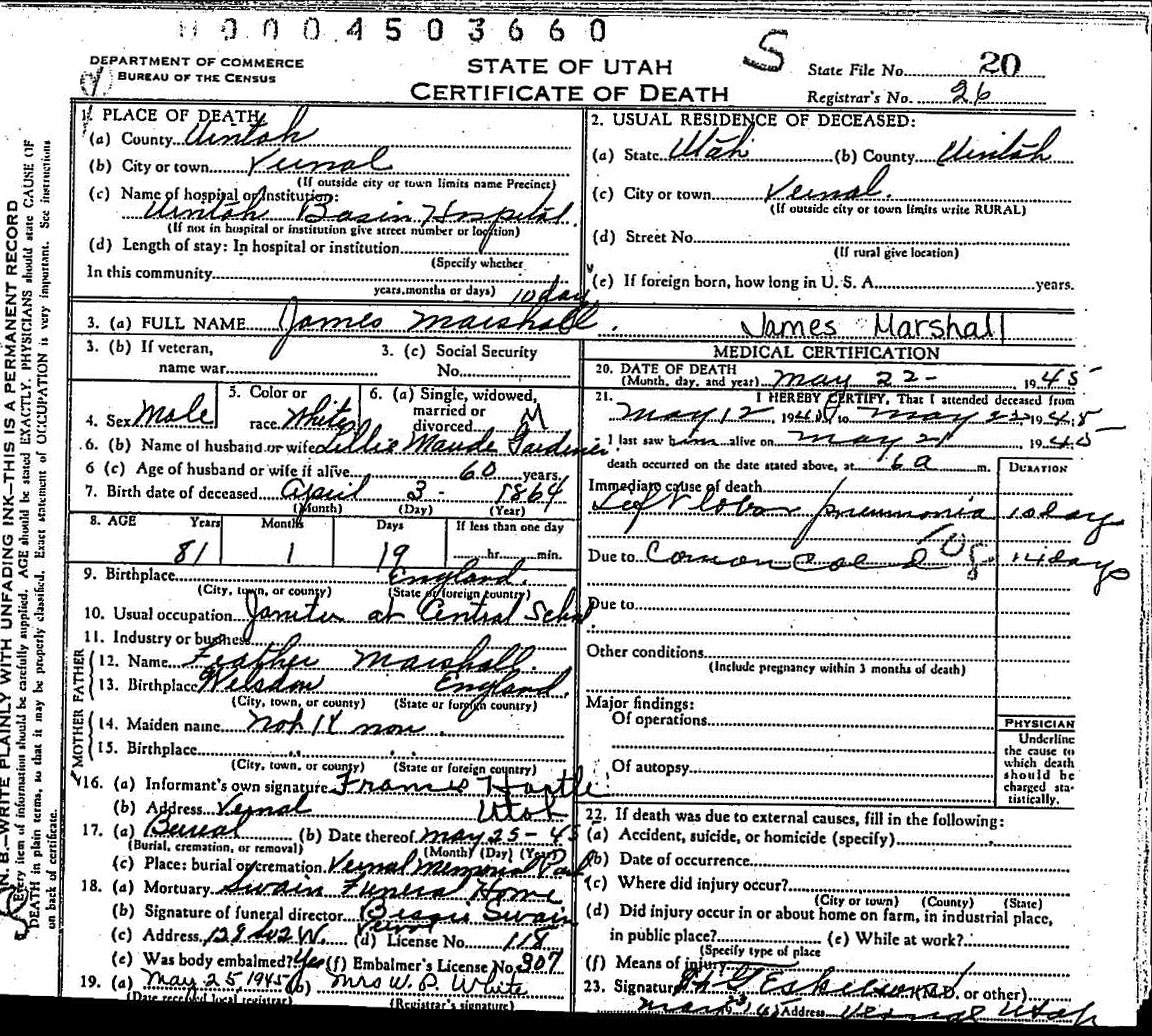 H 0 0 0 4 5 0 3 6 6 0
DEPARTMENT OF COMMERCE
BUREAU OF THE CENSUS
STATE OF UTAH
CERTIFICATE OF DEATH
S
State File No. 20
Registrar's No. 26
N. B.—WRITE PLAINLY WITH UNFADING INK—THIS IS A PERMANENT RECORD
Every item of information should be carefully supplied. AGE should be stated EXACTLY. PHYSICIANS should state CAUSE OF
DEATH in plain terms, so that it may be properly classified. Exact statement of OCCUPATION is very important. See instructions
on back of certificate.
1. PLACE OF DEATH
(a) County Uintah
(b) City or town Vernal
(If outside city or town limits name Precinct)
(c) Name of hospital or institution:
Uintah Basin Hospital
(If not in hospital or institution give street number or location)
(d) Length of stay: In hospital or institution
(Specify whether
In this community
years, months or days) 10 day
2. USUAL RESIDENCE OF DECEASED:
(a) State Utah (b) County Uintah
(c) City or town Vernal.
(If outside city or town limits write RURAL)
(d) Street No.
(If rural give location)
(e) If foreign born, how long in U. S. A. years.
3. (a) FULL NAME James Marshall. James Marshall
3. (b) If veteran,
name war
3. (c) Social Security
No.
4. Sex Male
5. Color or
race White
6. (a) Single, widowed,
married or
divorced M
6. (b) Name of husband or wife Lillie Maude
6 (c) Age of husband or wife if alive 60 years.
7. Birth date of deceased April 3 - 1864
(Month) (Day) (Year)
8. AGE Years Months Days If less than one day
81 1 19 hr. min.
9. Birthplace England.
(City, town, or county) (State or foreign country)
10. Usual occupation Janitor at Central School
11. Industry or business
FATHER
12. Name Feather Marshall.
13. Birthplace England.
(City, town, or county) (State or foreign country)
MOTHER
14. Maiden name
15. Birthplace
(City, town, or county) (State or foreign country)
16. (a) Informant's own signature
(b) Address Vernal Utah
17. (a) Burial (b) Date thereof May 25 - 45
(Burial, cremation, or removal) (Month) (Day) (Year)
(c) Place: burial or cremation Vernal Memorial Park
18. (a) Mortuary Swain Funeral Home
(b) Signature of funeral director Swain
(c) Address Vernal (d) License No. 118
(e) Was body embalmed? Yes (f) Embalmer's License No. 307
19. (a) May 25, 1945 (b) Mrs W. P. White
(Date received local registrar) (Registrar's signature)
MEDICAL CERTIFICATION
20. DATE OF DEATH
(Month, day, and year) May 22 - 1945
21. I HEREBY CERTIFY, That I attended deceased from
May 12 19 to May 22 1945
I last saw him alive on May 21 1945
death occurred on the date stated above, at 6 a m. DURATION
Immediate cause of death
Left lobar pneumonia 10 days
Due to Comon Cold 14 days
Due to
Other conditions
(Include pregnancy within 3 months of death)
Major findings:
Of operations
Of autopsy
PHYSICIAN
Underline
the cause to
which death
should be
charged sta-
tistically.
22. If death was due to external causes, fill in the following:
(a) Accident, suicide, or homicide (specify)
(b) Date of occurrence
(c) Where did injury occur?
(City or town) (County) (State)
(d) Did injury occur in or about home on farm, in industrial place,
in public place? (e) While at work?
(Specify type of place
(f) Means of injury
23. Signature (M.D. or other)
Address Vernal Utah